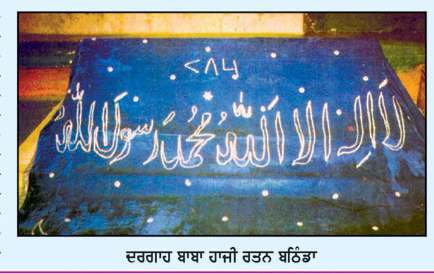 ٧٨٦
لا اله الا الله محمد رسول الله
ਦਰਗਾਹ ਬਾਬਾ ਹਾਜੀ ਰਤਨ ਬਠਿੰਡਾ